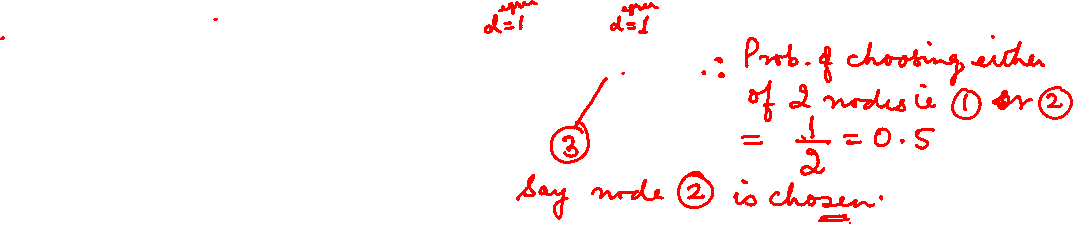 d=1 d=1
∴ Prob. of choosing either
of 2 nodes ie ① or ②
= 1/2 = 0.5
③
Say node ② is chosen.